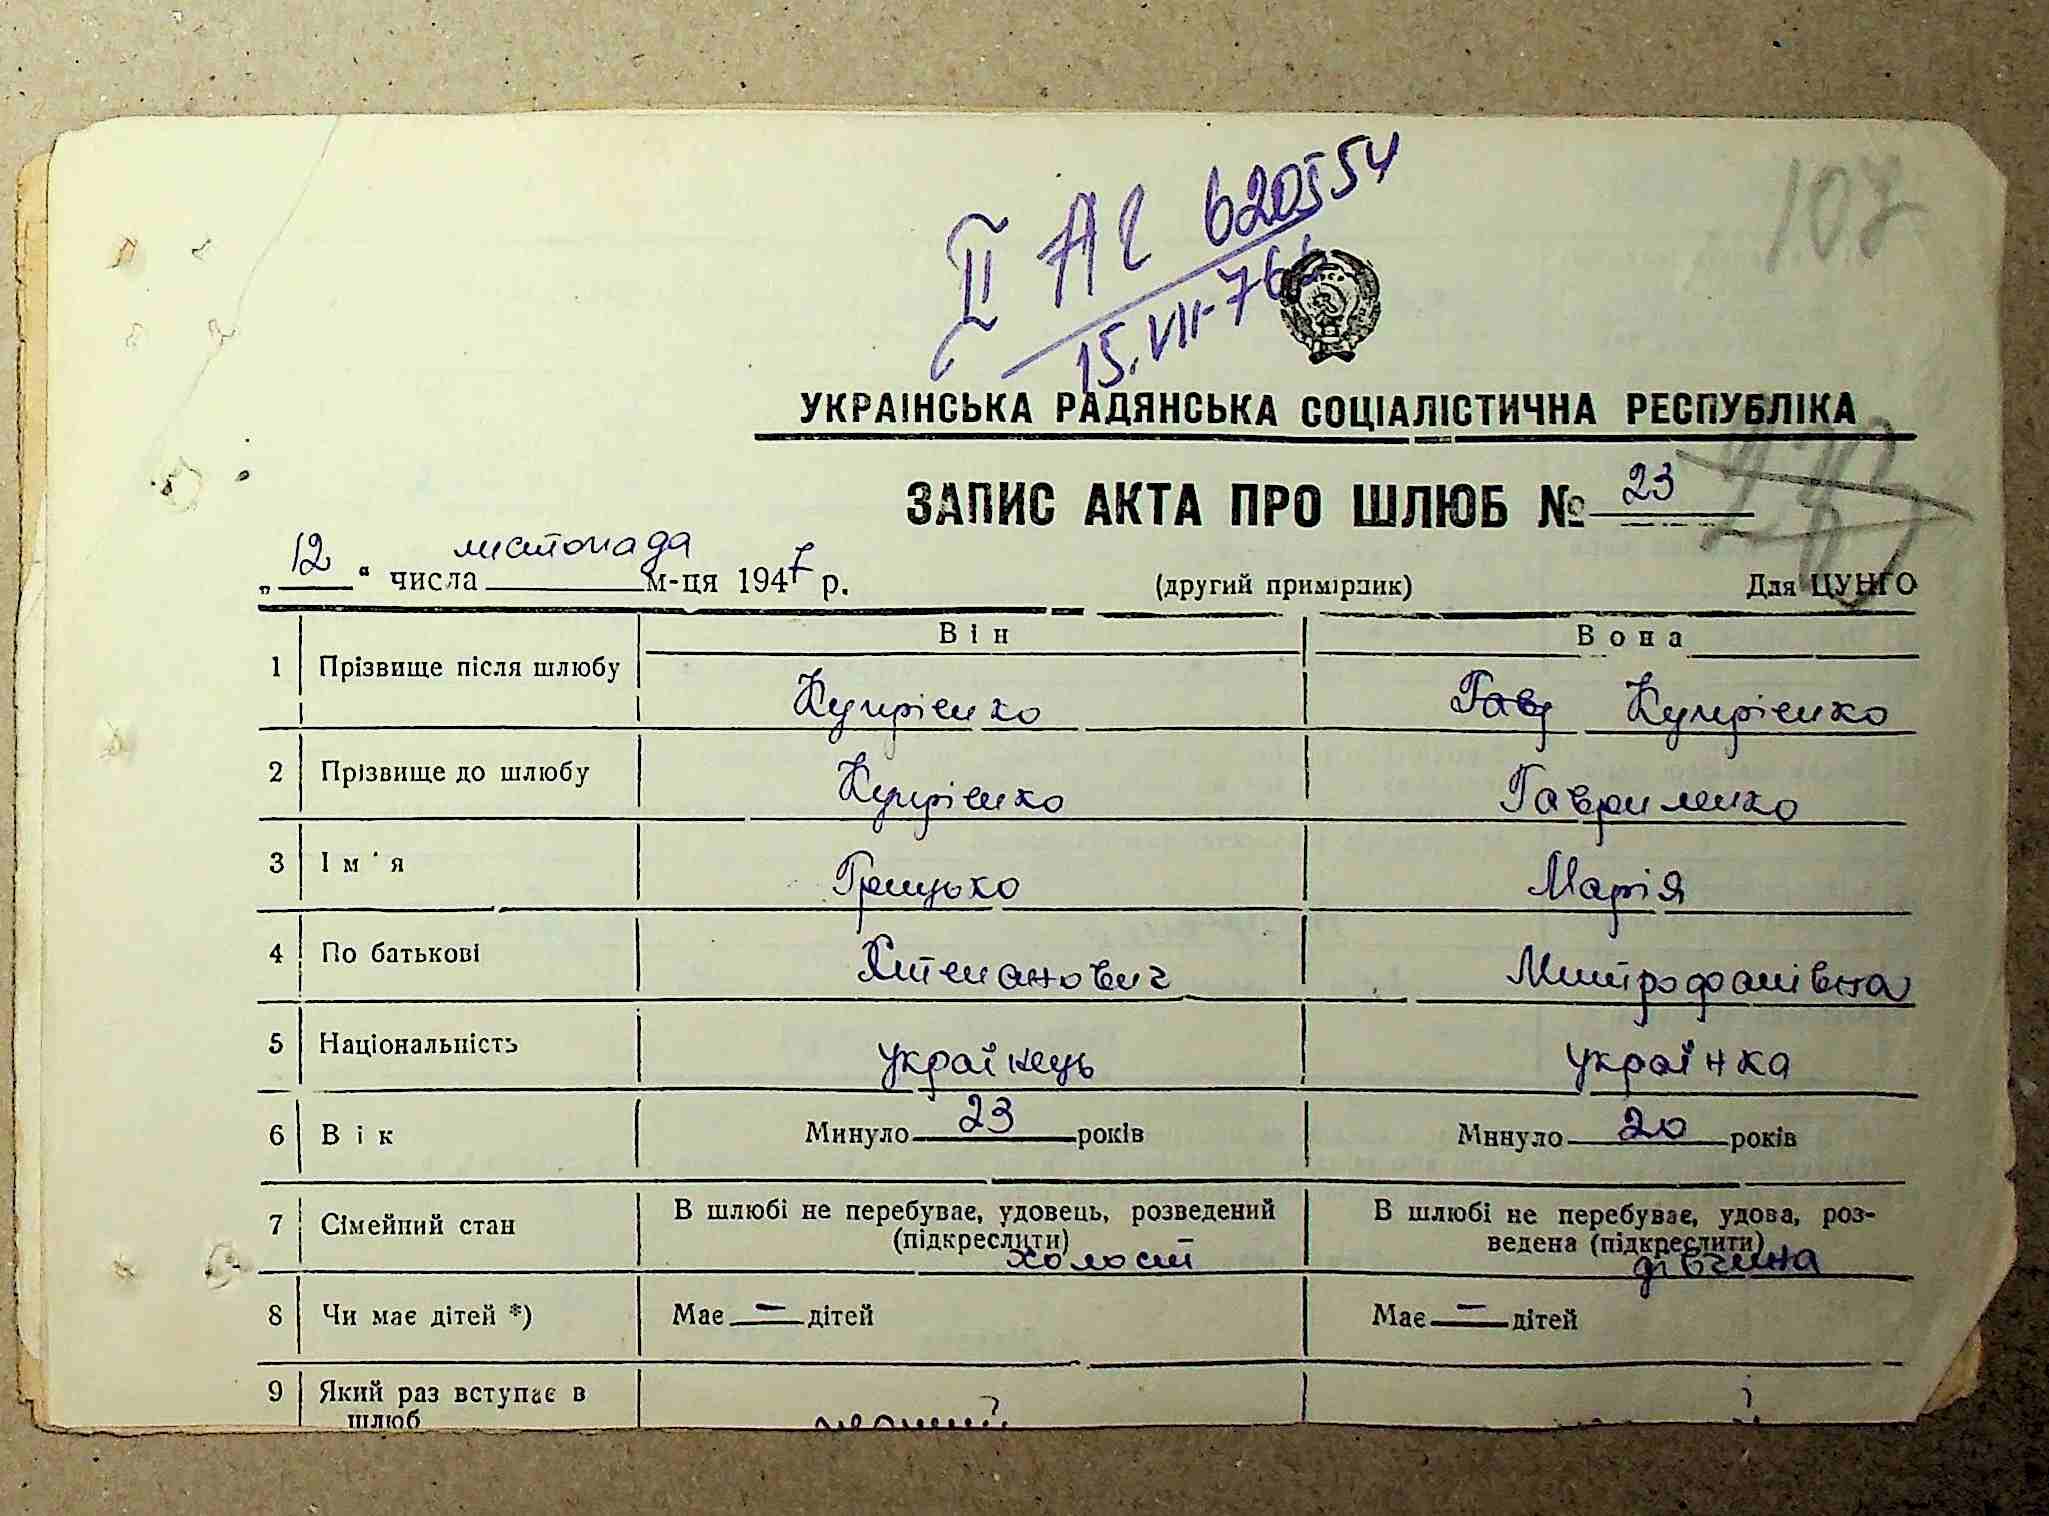 II АС 620554
15.VII-76
107
УКРАЇНСЬКА РАДЯНСЬКА СОЦІАЛІСТИЧНА РЕСПУБЛІКА
ЗАПИС АКТА ПРО ШЛЮБ № 23
„12“ числа листопада м-ця 1947 р. (другий примірник) Для ЦУНГО
Він Вона
1 Прізвище після шлюбу Купрієнко Гавр Купрієнко
2 Прізвище до шлюбу Купрієнко Гавриленко
3 Ім'я Грицько Марія
4 По батькові Хтеманович Митрофанівна
5 Національність українець українка
6 Вік Минуло 23 років Минуло 20 років
7 Сімейний стан В шлюбі не перебуває, удовець, розведений В шлюбі не перебуває, удова, роз-
(підкреслити) ведена (підкреслити)
холостий дівчина
8 Чи має дітей *) Має — дітей Має — дітей
9 Який раз вступає в
шлюб перший